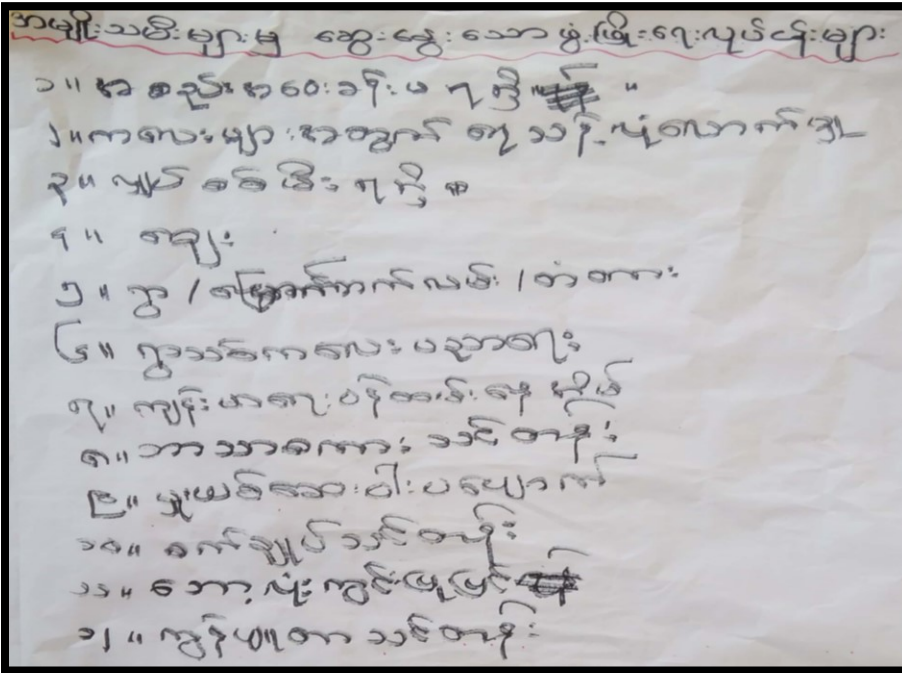 အမျိုးသမီးများမှ ဆွေးနွေးသောဖွံ့ဖြိုးရေးလုပ်ငန်းများ
၁။ အစည်းအဝေးခန်းမ ရရှိ ။
၂။ကလေးများအတွက် ရေသန့်လုံလောက်
၃။ လျှပ်စစ်မီး ရရှိ ။
၄။ ဈေး
၅။ ရွာ / မြောက်ဘက်လမ်း / တံတား
၆။ ရွာသစ်ကလေး ပညာရေး
၇။ ကျန်းမာရေးဝန်ထမ်းနေအိမ်
၈။ဘာသာစကား သင်တန်း
၉။ မူးယစ်ဆေးဝါးပပျောက်
၁၀။ စက်ချုပ်သင်တန်း
၁၁။ ဘော့လုံးကွင်းပြုပြင်
၁၂။ ကွန်ပျူတာသင်တန်း